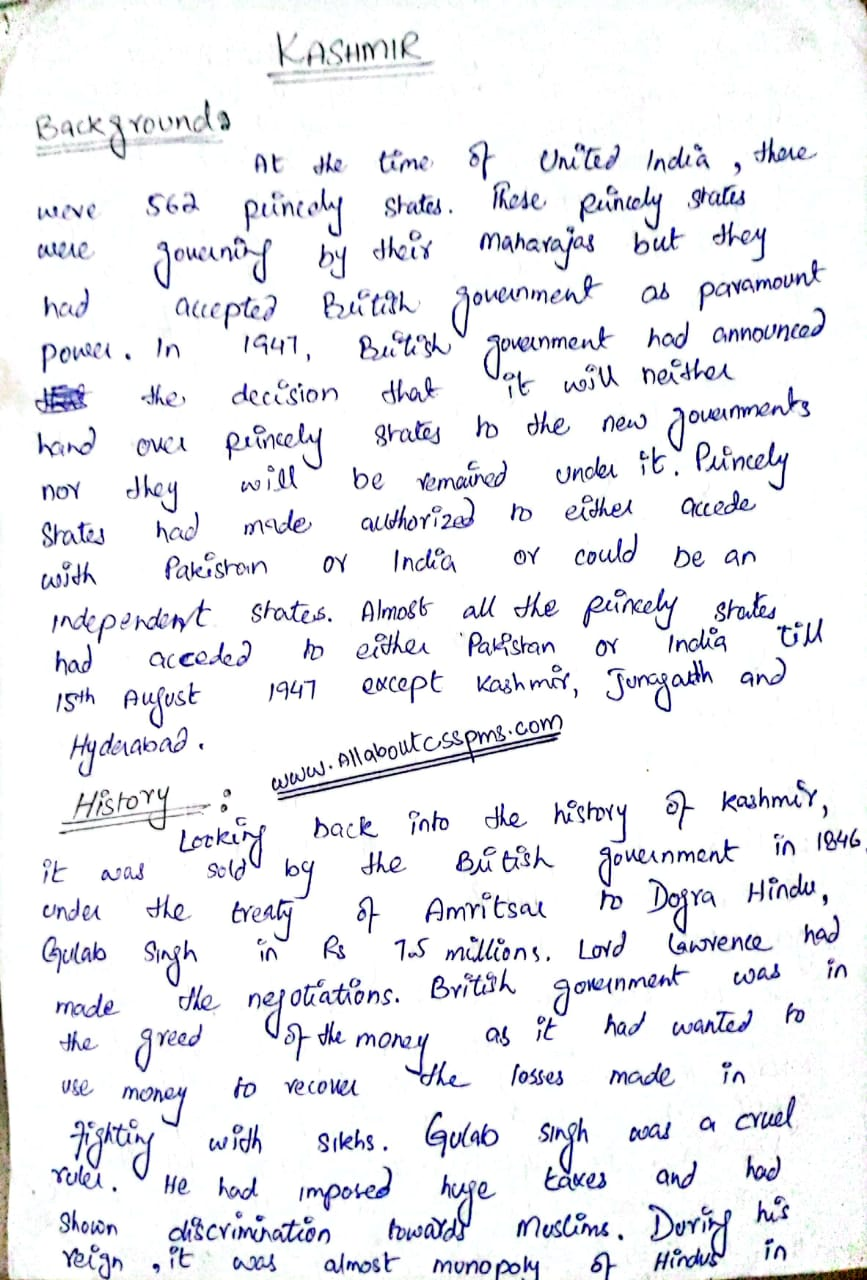 KASHMIR
Background:
At the time of United India, there
were 562 princely states. These princely states
were governing by their maharajas but they
had accepted British government as paramount
power. In 1947, British government had announced
the decision that it will neither
hand over princely states to the new governments
nor they will be remained under it. Princely
States had made authorized to either accede
with Pakistan or India or could be an
independent states. Almost all the princely states
had acceded to either Pakistan or India till
15th August 1947 except Kashmir, Junagadh and
Hyderabad.
www.Allaboutcsspms.com
History :
Looking back into the history of Kashmir,
it was sold by the British government in 1846
under the treaty of Amritsar to Dogra Hindu,
Gulab Singh in Rs 7.5 millions. Lord Lawrence had
made the negotiations. British government was in
the greed of the money as it had wanted to
use money to recover the losses made in
fighting with Sikhs. Gulab Singh was a cruel
ruler. He had imposed huge taxes and had
shown discrimination towards Muslims. During his
reign, it was almost monopoly of Hindus in